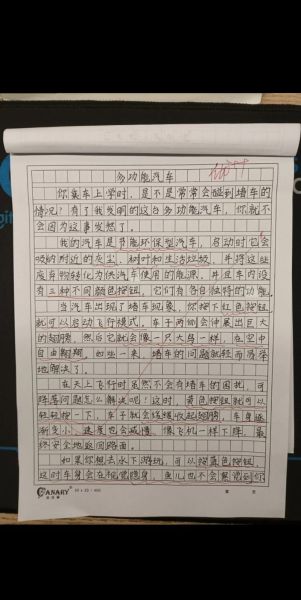 多功能汽车
你乘车上学时，是不是常常会碰到堵车的
情况？有了我发明的这台多功能汽车，你就不
会因为这事发愁了。
我的汽车是节能环保型汽车，启动时它会
吸纳附近的灰尘、树叶和生活垃圾，并将这些
废弃物转化为供汽车使用的能源。并且车内设
有三种不同颜色按钮，它们有各自独特的功能。
当汽车出现了堵车现象，你按下红色按钮，
就可以启动飞行模式。车子两侧会伸展出巨大
的翅膀，然后它就会像一只大鸟一样，在空中
自由翱翔。如此一来，堵车的问题就轻而易举
地解决了。
在天上飞行时虽然不会有堵车的困扰，可
降落问题怎么解决呢？这时，黄色按钮就可以
轻轻按一下，车子就会缓缓收起翅膀，车身逐
渐变小，速度也会减慢，像飞机一样下降，最
终安全地返回路面。
如果你想去水下游玩，可以按蓝色按钮，
这时车身会在视觉隐身，鱼儿也不会察觉到你
CANARY